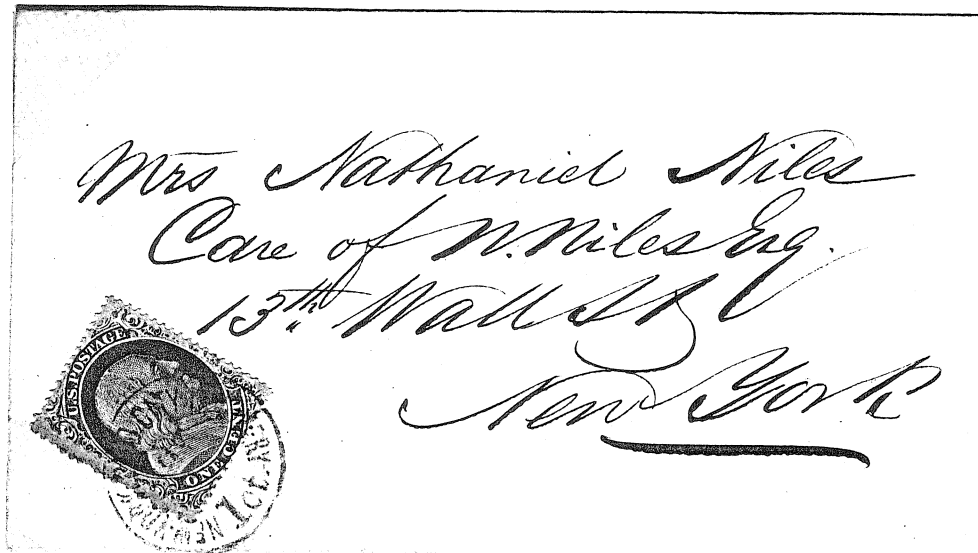 Mrs Nathaniel Niles
Care of N. Niles Esq.
13th Wall St
New York
U.S. POSTAGE
ONE CENT
1 CT
NEW YORK